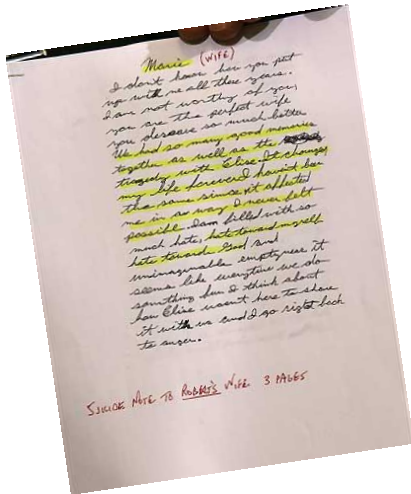 Marie (WIFE)
I don't know how you put
up with me all these years.
I am not worthy of you,
you are the perfect wife
you deserve so much better
We had so many good memories
together as well as the
tragedy with Elise. It changed
my life forever I havint been
the same since it affected
me in as way I never felt
possible. I am filled with so
much hate, hate toward myself
hate toward God and
unimaginable emptyness it
seems like everytime we do
something how I think about
how Elise wasn't here to share
it with us and I go right back
to anger.
SUICIDE NOTE TO ROBERT'S WIFE 3 PAGES